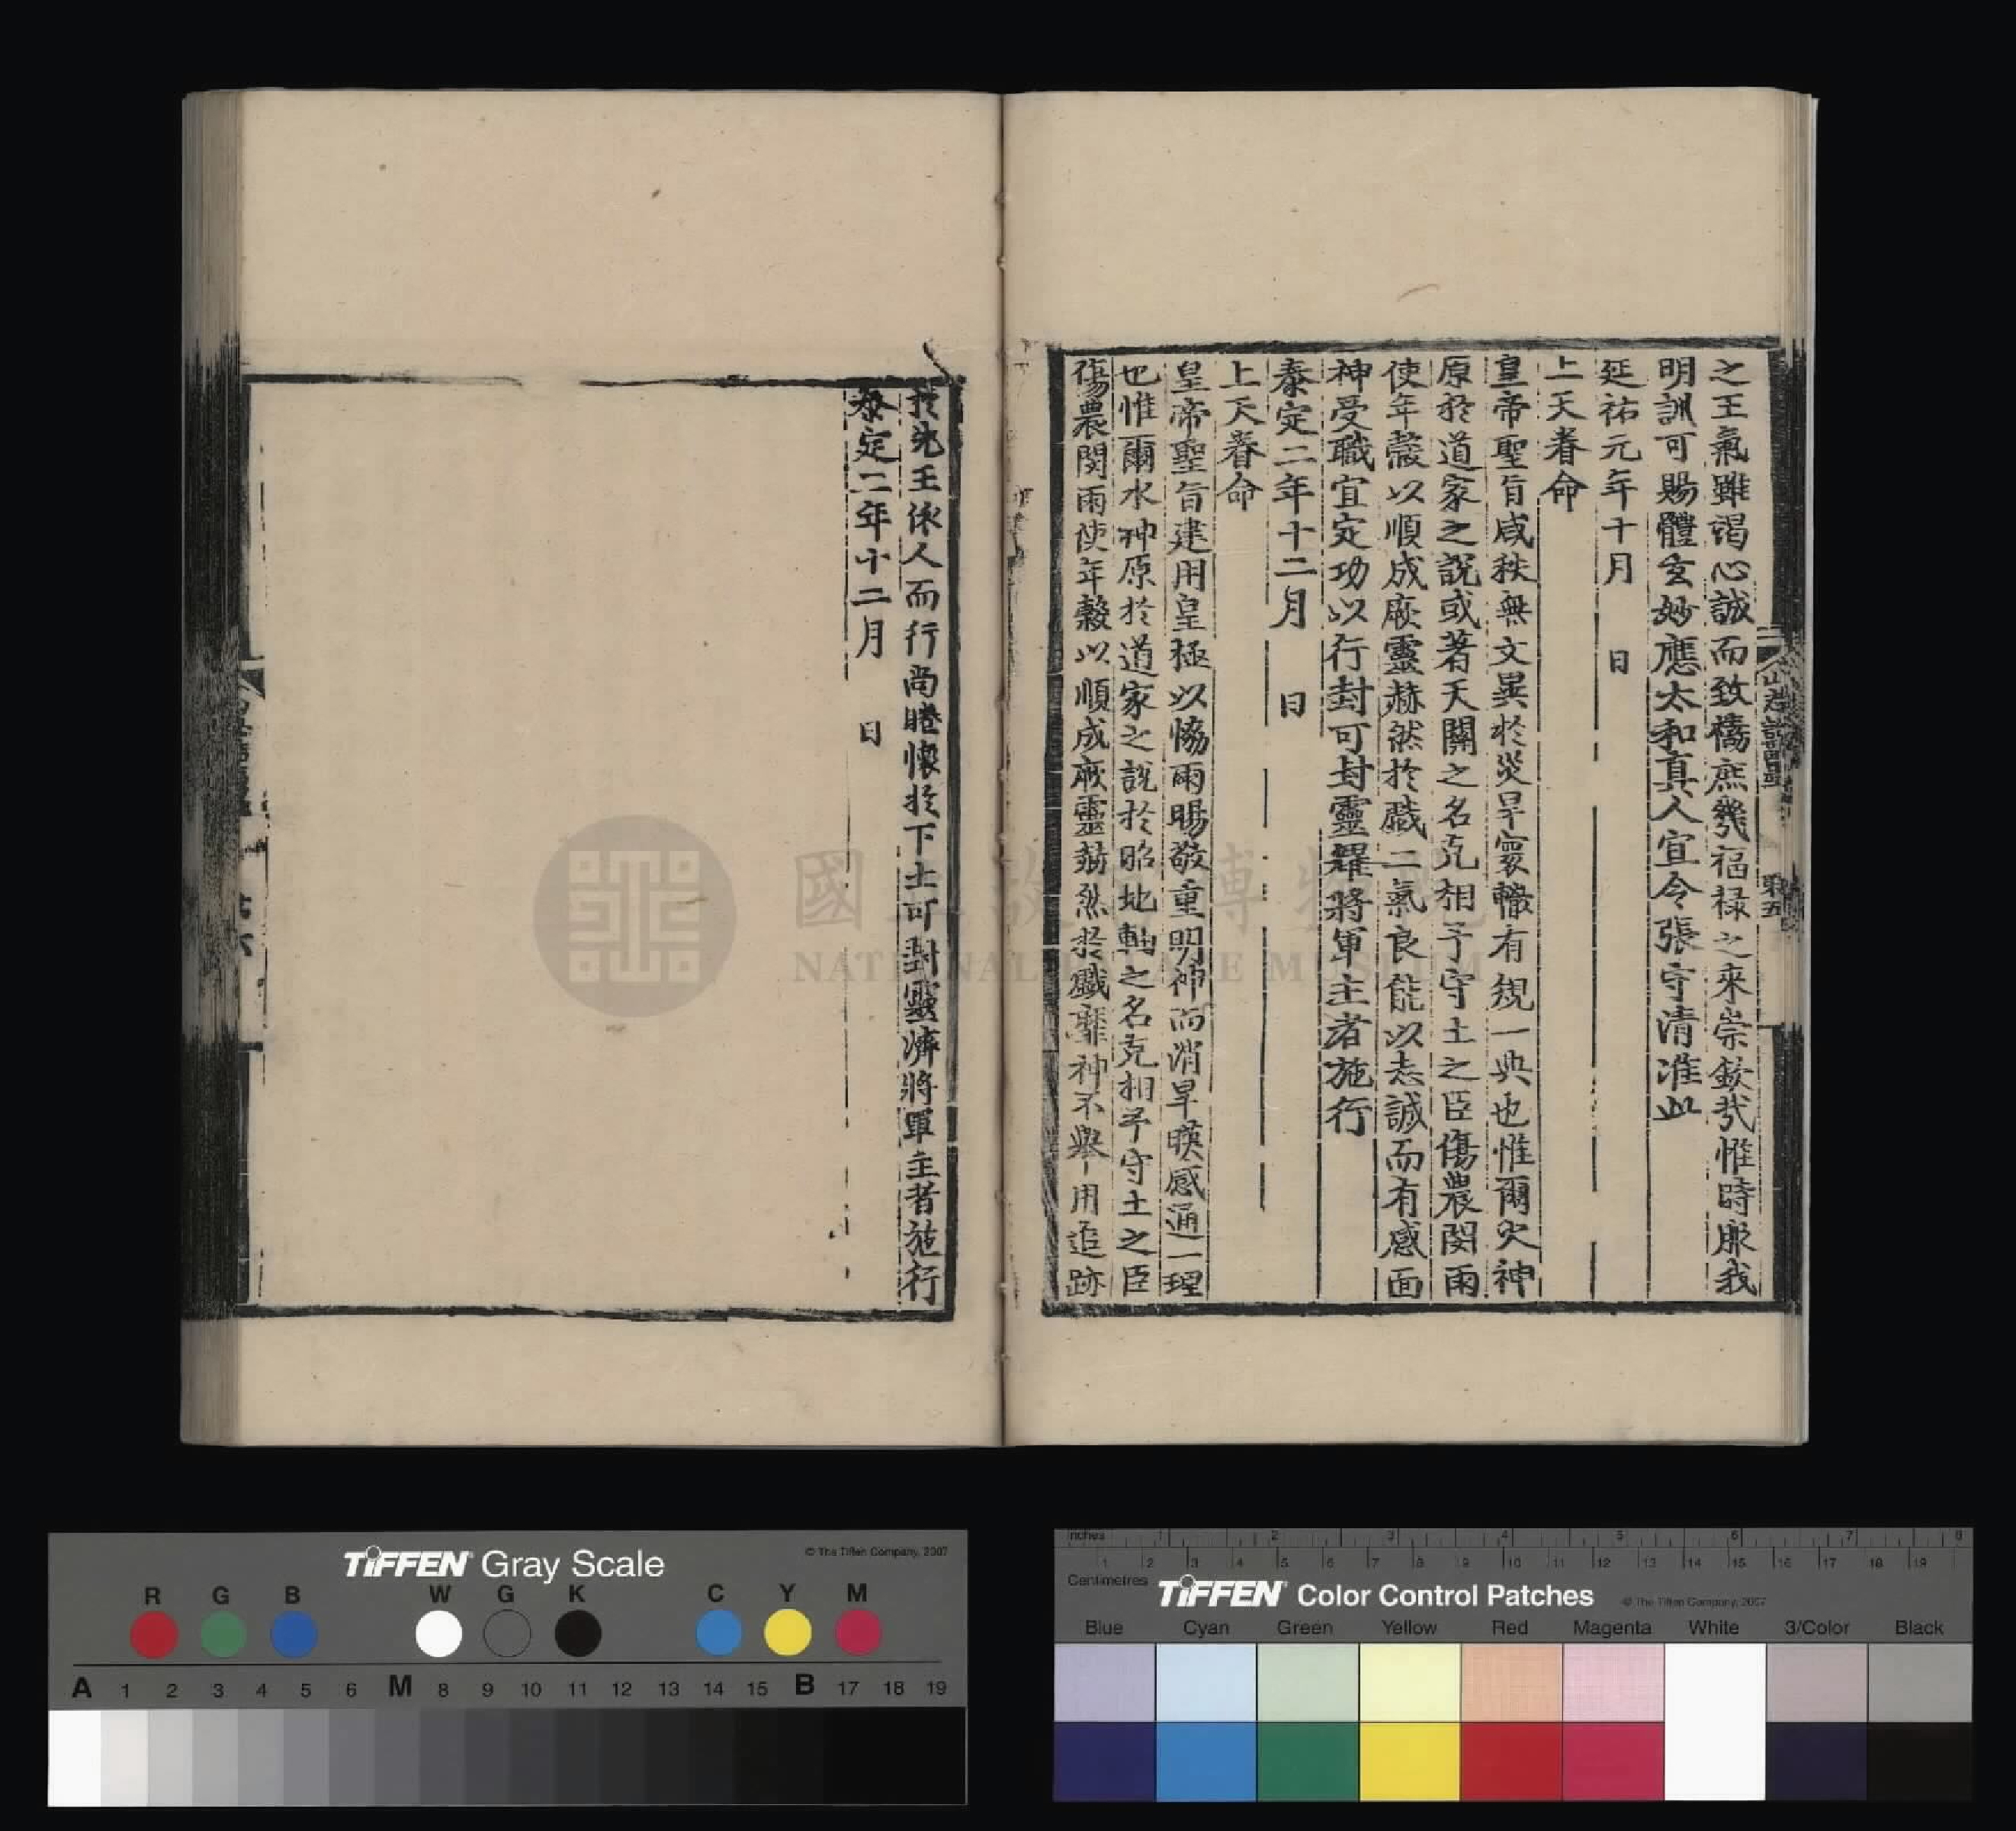 之王氣雖謁心誠而致禱庶幾福祿之來崇欽哉惟時服我
明訓可賜體玄妙應太和真人宣令張守清准此
延祐元年十月　日
上天眷命
皇帝聖旨咸秩無文異於災旱寰轍有規一典也惟爾火神
原於道家之說或著天關之名克相予守土之臣傷農閔雨
使年穀以順成厥靈赫然於職二氣良能以志誠而有感面
神受職宜定功以行封可封靈耀將軍主者施行
泰定二年十二月　日
上天眷命
皇帝聖旨建用皇極以協雨暘敬重明神而消旱暵感通一理
也惟爾水神原於道家之說於昭地軸之名克相予守土之臣
傷農閔雨使年穀以順成厥靈赫然於職靡神不舉用追跡
於先王依人而行尚睠懷於下土可封靈濟將軍主者施行
泰定二年十二月　日
國立故宮博物院
NATIONAL PALACE MUSEUM
TIFFEN Gray Scale
© The Tiffen Company, 2007
R G B W G K C Y M
A 1 2 3 4 5 6 M 8 9 10 11 12 13 14 15 B 17 18 19
Inches 1 2 3 4 5 6 7 8
1 2 3 4 5 6 7 8 9 10 11 12 13 14 15 16 17 18 19
Centimetres
TIFFEN Color Control Patches
© The Tiffen Company, 2007
Blue Cyan Green Yellow Red Magenta White 3/Color Black